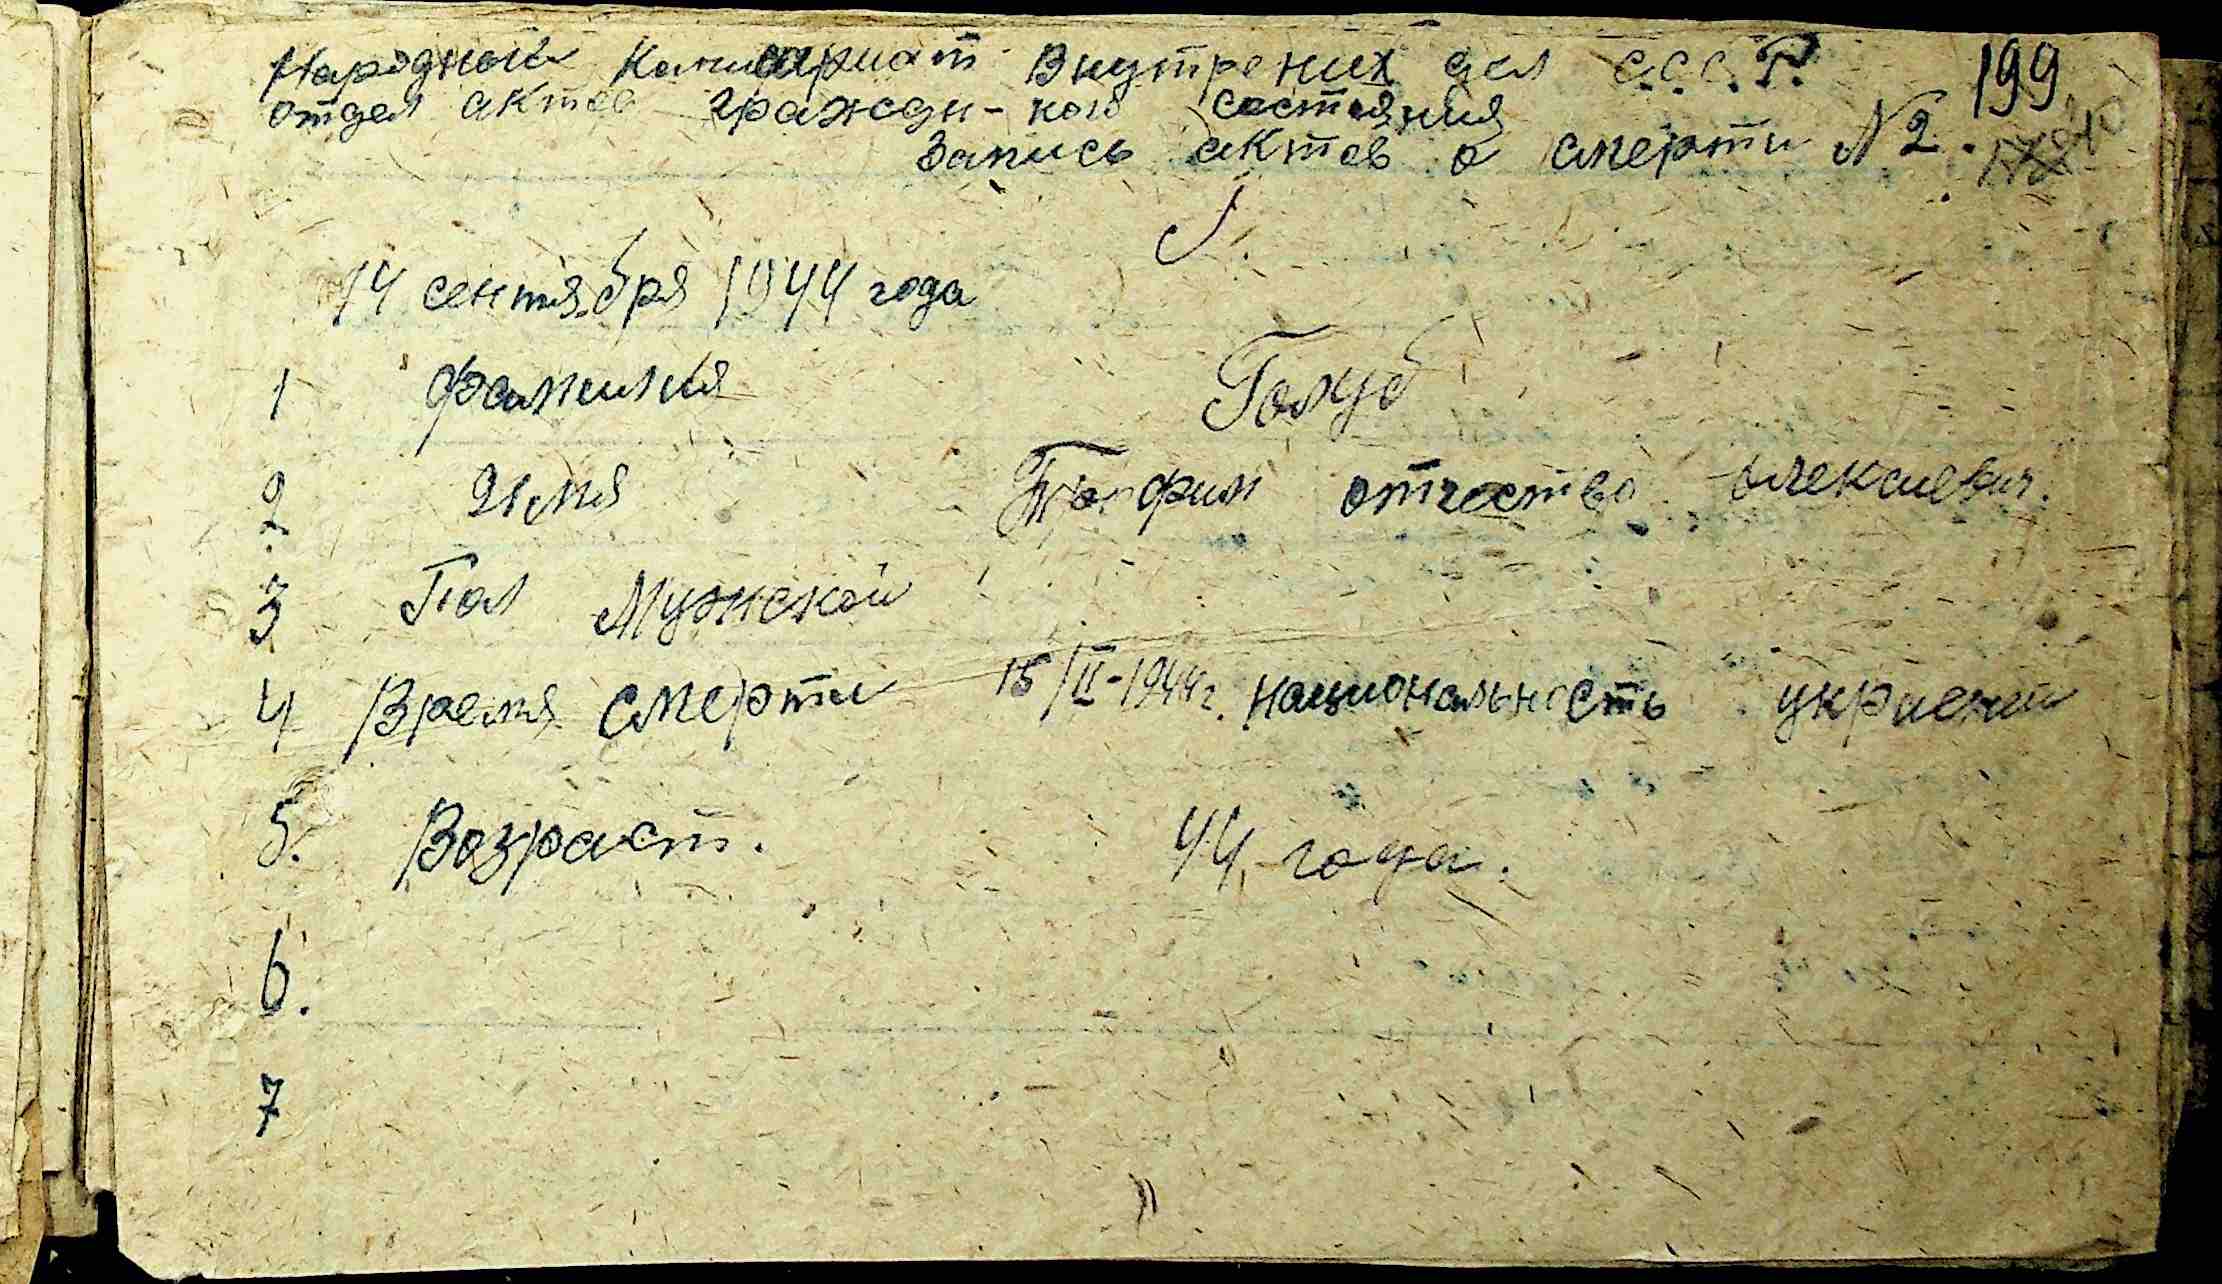 Народной Комисариат Внутрених дел С.С.С.Р. 199
отдел актов граждан-кого состояния
Запись актов о смерти N 2.
I.
14 сентября 1944 года
1 фамилия Голуб
2 Имя Трофим отчество Алексиевич.
3 Пол Мужской
4 Время смерти 15/II-1944г. национальность украенец
5. Возраст. 44 года.
6.
7